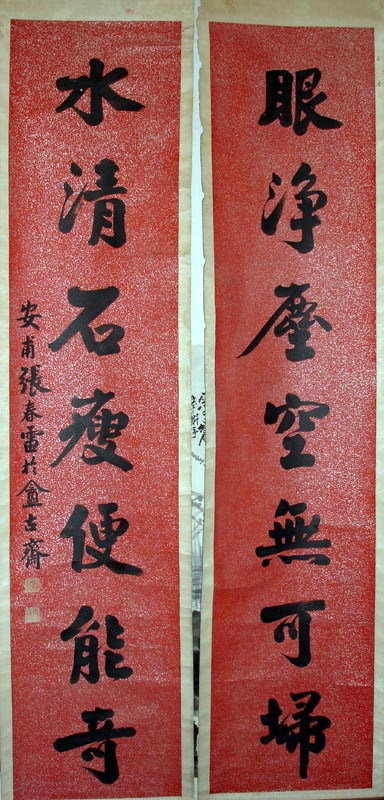 眼淨塵空無可埽
水清石瘦便能奇
安甫張春雷於盦古齋